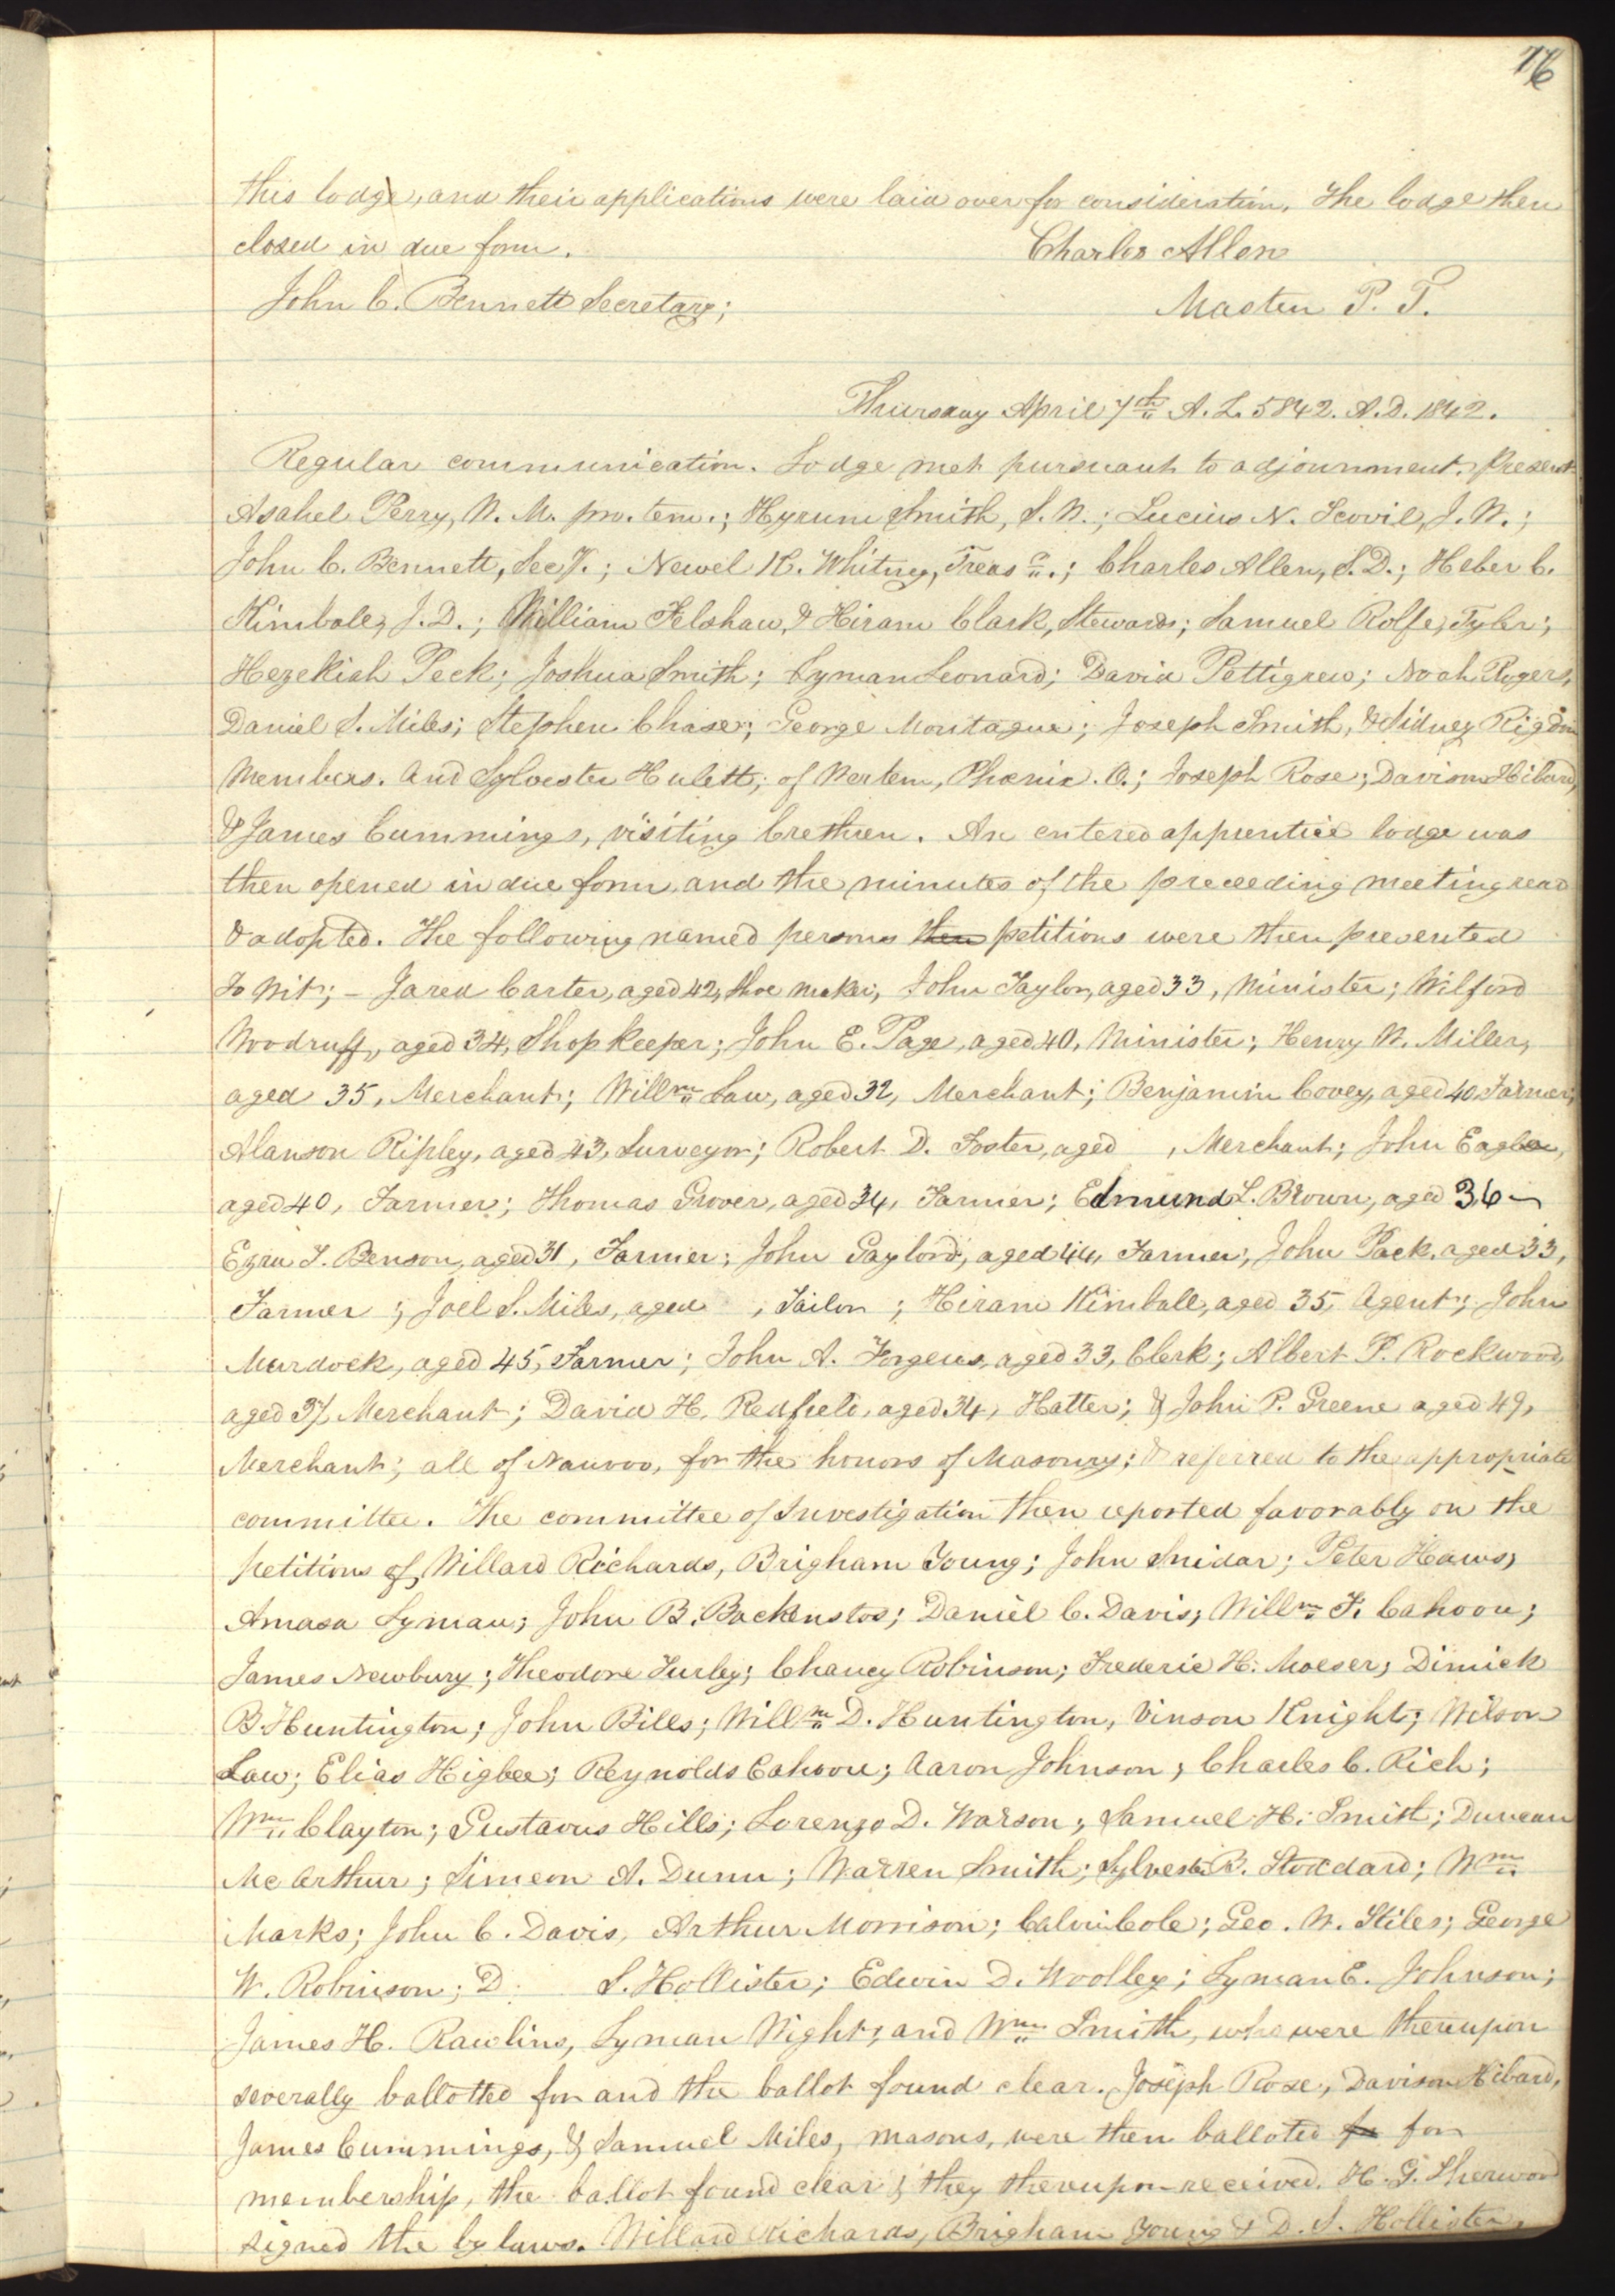 76
this lodge, and their applications were laid over for consideration. The lodge then
closed in due form. Charles Allen
John C. Bennett Secretary; Master P. T.
Thursday April 7th A. L. 5842. A. D. 1842.
Regular communication. Lodge met pursuant to adjournment. Present
Asahel Perry, W. M. pro. tem.; Hyrum Smith, S. W.; Lucius N. Scovil, J. W.;
John C. Bennett, Sec'y.; Newel K. Whitney, Treasr.; Charles Allen, S. D.; Heber C.
Kimball, J. D.; William Felshaw, & Hiram Clark, Stewards; Samuel Rolfe, Tyler;
Hezekiah Peck; Joshua Smith; Lyman Leonard; David Pettigrew; Noah Rogers,
Daniel S. Miles; Stephen Chase; George Montague; Joseph Smith, & Sidney Rigdon
Members. And Sylvester Hulett, of Western, Phœnix. O.; Joseph Rose; Davison Hibard,
& James Cummings, visiting brethren. An entered apprentice lodge was
then opened in due form, and the minutes of the preceeding meeting read
& adopted. The following named persons then petitions were then presented
To Wit; – Jared Carter, aged 42, shoe maker, John Taylor, aged 33, Minister; Wilford
Woodruff, aged 34, Shop keeper; John E. Page, aged 40, Minister; Henry W. Miller,
aged 35, Merchant; Willm Law, aged 32, Merchant; Benjamin Covey, aged 40, Farmer;
Alanson Ripley, aged 43, Surveyor; Robert D. Foster, aged , Merchant; John
aged 40, Farmer; Thomas Grover, aged 34, Farmer; Edmund L. Brown, aged 36 –
Ezra T. Benson, aged 31, Farmer; John Gaylord, aged 44, Farmer; John Pack, aged 33,
Farmer; Joel S. Miles, aged , Tailor; Hiram Kimball, aged 35, Agent; John
Murdock, aged 45, Farmer; John A. Forgeus, aged 33, Clerk; Albert P. Rockwood,
aged 37 Merchant; David H. Redfield, aged 34, Hatter; & John P. Greene aged 49,
Merchant; all of Nauvoo, for the honors of Masonry; & referred to the appropriate
committee. The committee of Investigation then reported favorably on the
petitions of, Willard Richards, Brigham Young; John Snidar; Peter Haws;
Amasa Lyman; John B. Backenstos; Daniel C. Davis; Willm F. Cahoon;
James Newbury; Theodore Turley; Chancy Robinson; Frederic H. Moeser; Dimick
B. Huntington; John Bills; Willm D. Huntington, Vinson Knight; Wilson
Law; Elias Higbee; Reynolds Cahoon; Aaron Johnson; Charles C. Rich;
Wm Clayton; Gustavus Hills; Lorenzo D. Warson; Samuel H. Smith; Duncan
Mc Arthur; Simeon A. Dunn; Warren Smith; Sylvester B. Stoddard; Wm
Marks; John C. Davis, Arthur Morrison; Calvin Cole; Geo. W. Stiles; George
W. Robinson; D. S. Hollister; Edwin D. Woolley; Lyman E. Johnson;
James H. Rawlins, Lyman Wight; and Wm Smith, who were thereupon
severally ballotted for and the ballot found clear. Joseph Rose, Davison Hibard,
James Cummings, & Samuel Miles, masons, were then balloted for for
membership, the ballot found clear & they thereupon received. H. G. Sherwood
signed the by laws. Willard Richards, Brigham Young & D. S. Hollister,